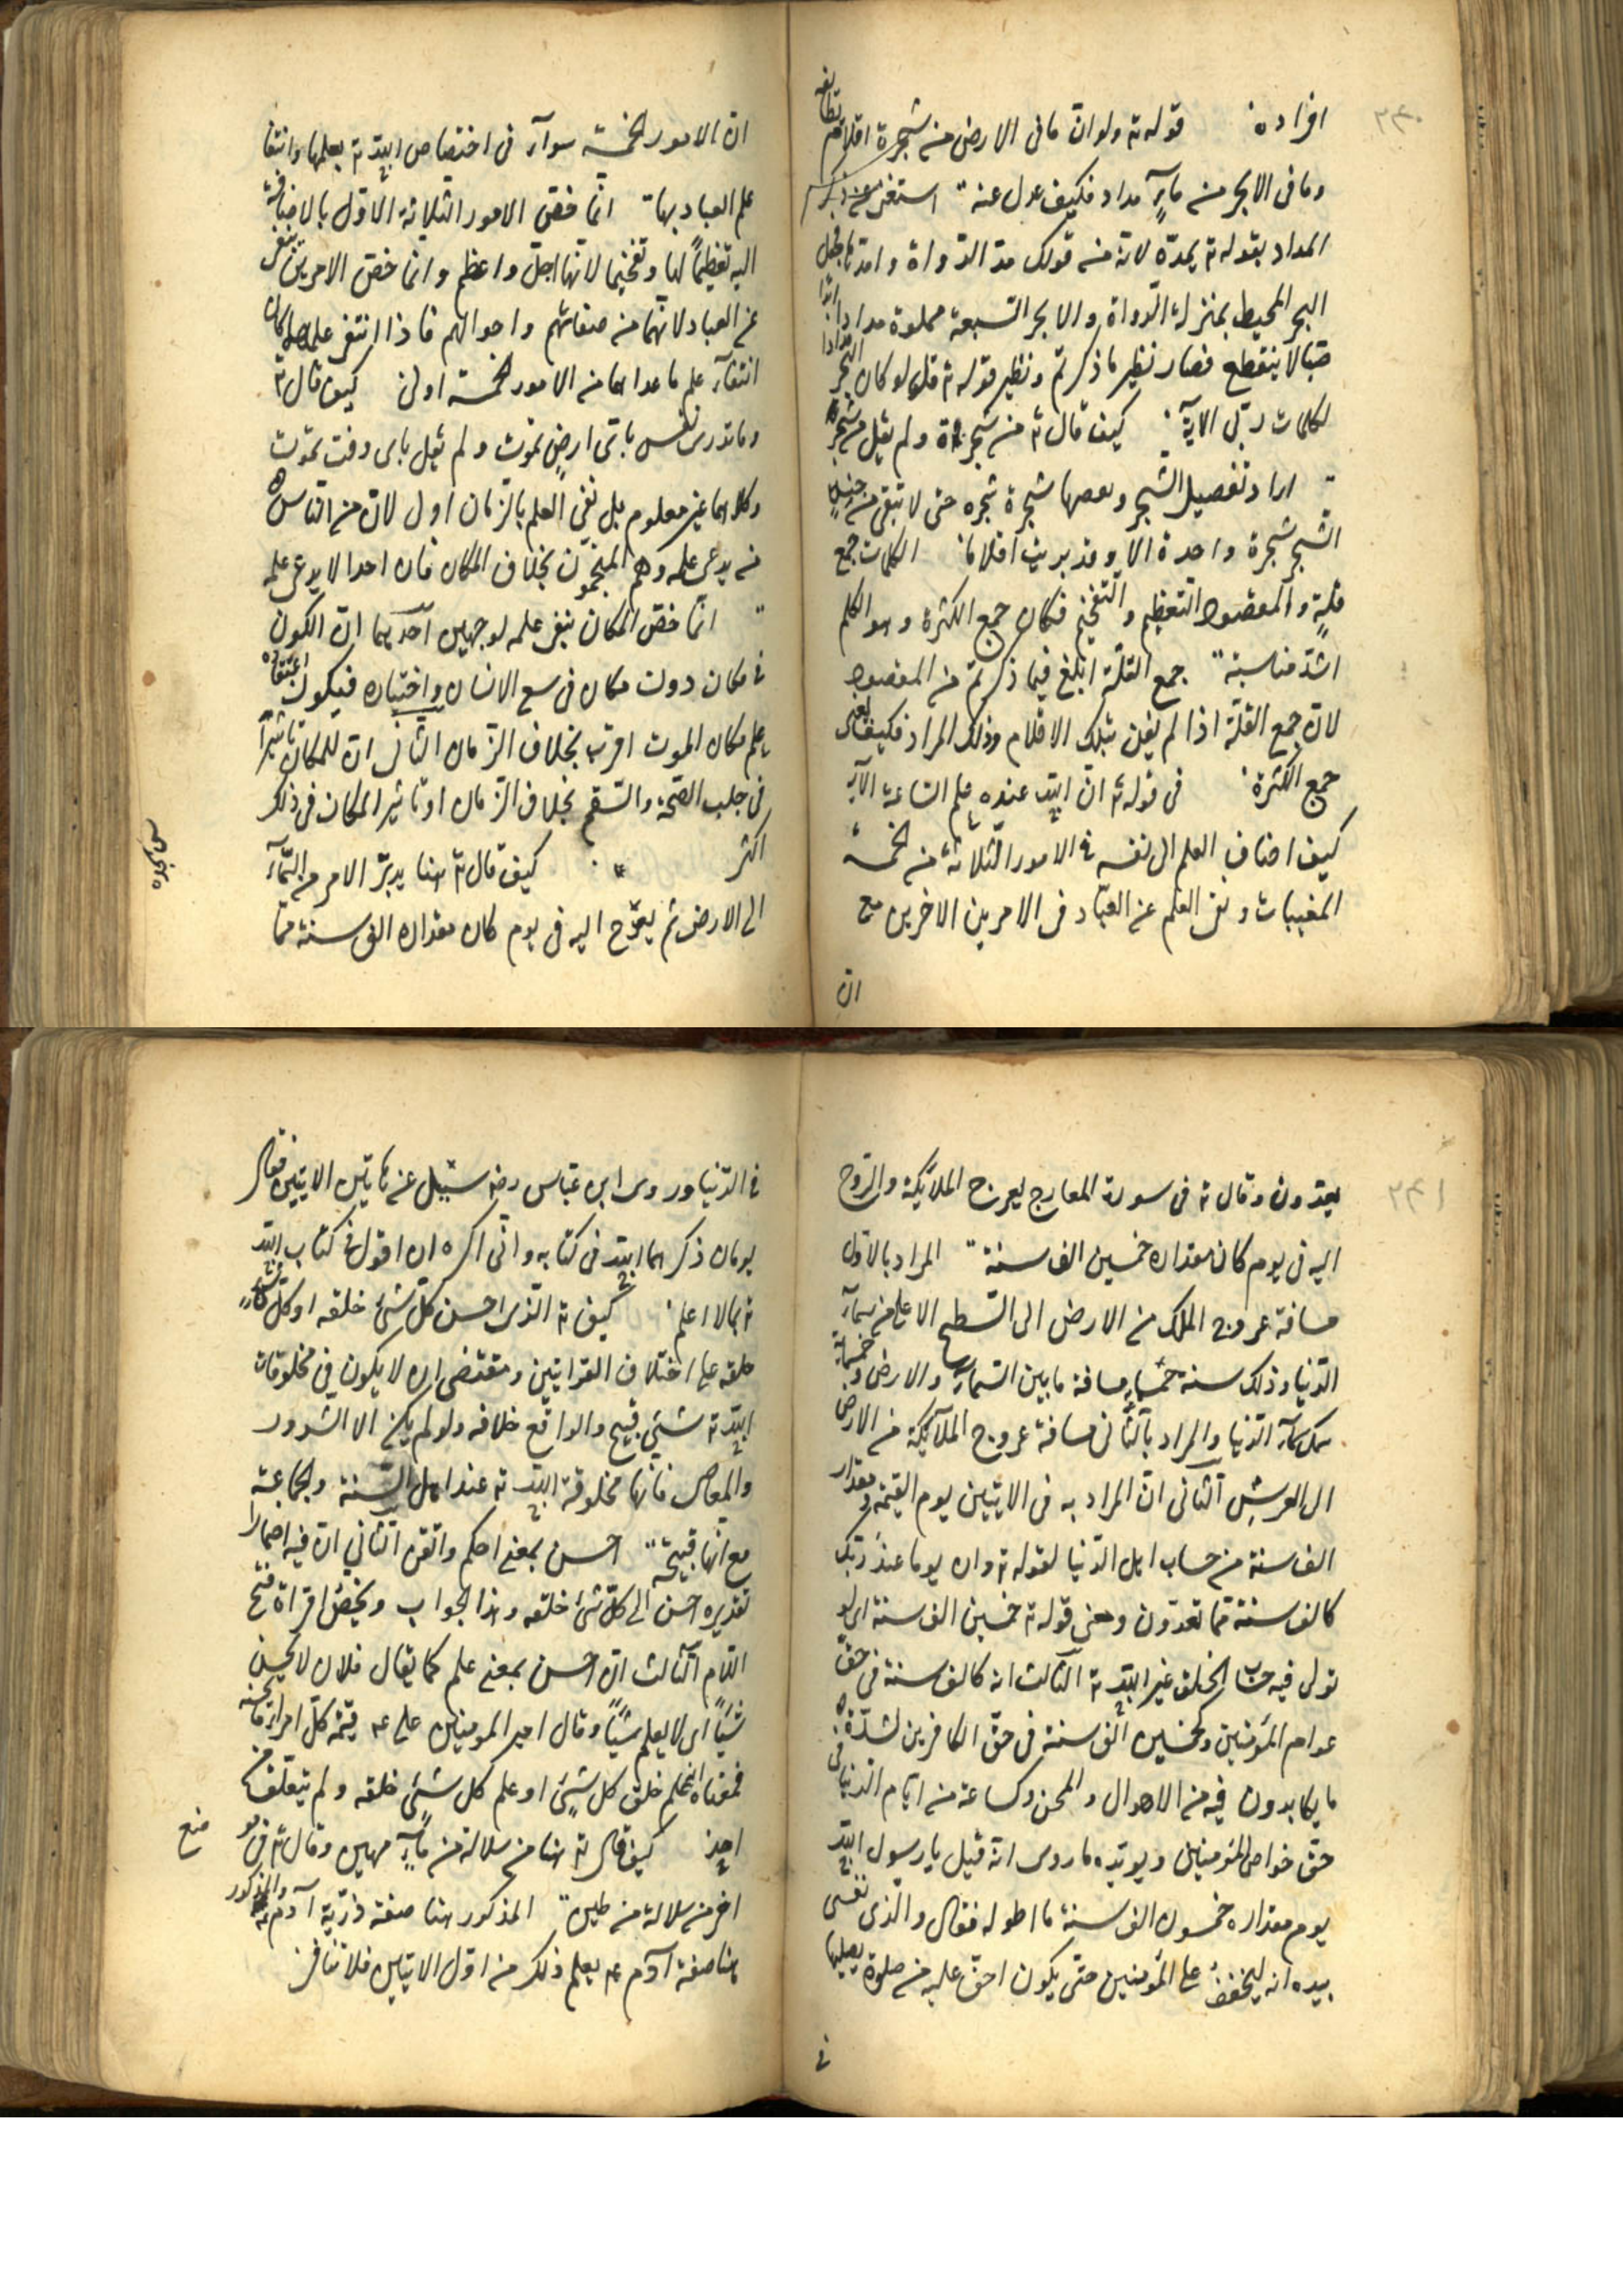 ٢٤٠
افراده قوله ته ولو ان ما فى الارض من شجرة اقلام تطابقه
وما فى الابحر من مآءٍ مداد فكيف عدل عنه استغنى عن ذكر
المداد بقوله ته يمدّه لانه من قولك مدّ الدّواة وامدّها فجعل
البحر المحيط بمنزلة الدواة والابحر السبعة مملوة مدادا ابدا
صبّا لا ينقطع فصار نظير ما ذكرتم ونظير قوله ته قل لو كان البحر مدادا
لكلمات ربّى الاية كيف قال ته من شجرة ولم يقل من شجر
اراد تفصيل الشجر وتقصيها شجرة شجره حتى لا تبقى من جنس
الشجر شجرة واحدة الا وقد بريت اقلاما الكلمات جمع
قلةٍ والمقصود التعظيم والتفخيم فكان جمع الكثرة وهو الكلم
اشدّ مناسبة جمع القلّة ابلغ فيما ذكرتم من المقصود
لان جمع القلّة اذا لم يفن بتلك الاقلام وذلك المراد فكيف يفنى
جمع الكثرة فى قوله ته ان الله عنده علم الساعة الآية
كيف اضاف العلم الى نفسه فى الامور الثلاثة من الخمسة
المغيبات ونفى العلم عن العباد فى الامرين الاخرين مع
ان
ان الامور الخمسة سوآء فى اختصاص الله ته بعلمها وانتفا
علم العباد بها انما خصّ الامور الثلاثة الاوّل بالاضافة
اليه تعظيمًا لها وتفخيما لانها اجلّ واعظم وانما خصّ الامرين بنفى
عن العباد لانهما من صفاتهم واحوالهم فاذا انتفى علمهما كان
انتفآء علم ما عداهما من الامور الخمسة اولى كيف قال ته
وما تدرى نفس باىّ ارضٍ تموت ولم يقل باى وقت تموت
وكلاهما غير معلوم بل نفى العلم بالزمان اولى لان من الناس
من يدعى علمه وهم المنجمون بخلاف المكان فان احدا لا يدعى علمه
انّما خصّ المكان بنفى علمه لوجهين احدهما ان الكون
فى مكان دون مكان فى سع الانسان واختياره فيكون اعتقاده
علم مكان الموت اقرب بخلاف الزمان الثانى ان للمكان تاثيرًا
فى جلب الصّحة والسّقم بخلاف الزمان او تاثير المكان فى ذلك
اكثر كيف قال ته هنا يدبّر الامر من السّمآء
الى الارض ثم يعرج اليه فى يوم كان مقداره الف سنة ممّا
٢٤١
يعدّون وقال ته فى سورة المعارج يعرج الملائكة والرّوح
اليه فى يوم كان مقداره خمسين الف سنة المراد بالاوّل
مسافة عروج الملك من الارض الى السّطح الاعلى من سمآء
الدنيا وذلك سنة خمسمائه مسافة ما بين السّمآء والارض وخمسمائة
سمك سمآء الدنيا والمراد بالثّانى مسافة عروج الملآئكة من الارض
الى العرش الثانى ان المراد به فى الايتين يوم القيمة ومقداره
الف سنة من حساب اهل الدنيا لقوله ته وان يوما عند ربّك
كالف سنة ممّا تعدّون ومعنى قوله ته خمسين الف سنة اى لو
تولى فيه حساب الخلق غير الله ته الثالث انه كالف سنة فى حقّ
عوام المؤمنين وكخمسين الف سنة فى حقّ الكافرين لشدّة
ما يكابدون فيه من الاهوال والمحن وكساعة من ايّام الدنيا فى
حقّ خواص المؤمنين ويؤيّده ما روى انه قيل يا رسول الله
يوم مقداره خمسون الف سنة ما اطوله فقال والذى نفسى
بيده انه ليخفف على المؤمنين حتى يكون اخفّ عليه من صلوة يصليها
فى
فى الدّنيا وروى ابن عبّاس رضه سئل عن هاتين الايتين فقال
يومان ذكرهما الله فى كتابه وانّى اكره ان اقول فى كتاب الله
ته بما لا اعلم كيف قال ته الّذى احسن كلّ شئ خلقه او كلّ شئ
خلقه على اختلاف القراتين ومقتضى ان لا يكون فى مخلوقات
الله ته شئ قبيح والواقع خلافه ولو لم يكن الا الشرور
والمعاصى فانها مخلوقة الله ته عند اهل السّنة والجماعة
مع انها قبيحة احسن بمعنى احكم واتقن الثانى ان فيه اضمارا
تقديره احسن الى كلّ شئ خلقه وهذا الجواب ويخصّ اقراة فتح
اللّام الثالث ان احسن بمعنى علم كما يقال فلان لا يحسن
شيئًا اى لا يعلم شيئًا وقال امير المومنين على عه قيمة كلّ امرئ ما يحسنه
فمعناه انه علم خلق كل شئٍ او علم كل شئ خلقه ولم يتعلّمه من
احد كيف قال ته هنا من سلالة من مآءٍ مهين وقال ته فى مو
اخر من سلالة من طين المذكور هنا صفة ذرّية آدم عه والمذكور
هنا صفة آدم عه يعلم ذلك من اوّل الايتين فلا تنافى